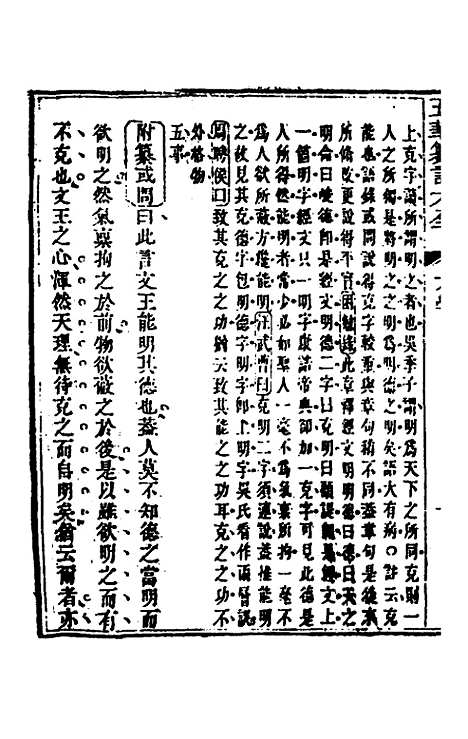 上克字謂所謂明之者也吳季子謂明為天下之所同克則一
人之所獨是將明之之明為明德之明矣語大有病○註云克
能也語錄或問說得克字較重與章句稍不同蓋章句是後來
所脩改更說得平實此章釋經文明明德曰德曰天之
明命曰峻德即是經文明德二字曰克明曰顧諟是經文上
一箇明字經文只一明字與諸帝典却加一克字可見此德是
人所得然能明者常少必如聖人一毫不為氣稟所拘一毫不
為人欲所蔽方僅能明汪武曹曰克明二字須連說蓋推能明
之故見其克德字包明德字即上明字吳氏看作兩層誤
周聘侯曰致其克之之功猶云致其能之之功耳克之之功不
外格物
五事
附纂或問曰此言文王能明其德也蓋人莫不知德之當明而
欲明之然氣稟拘之於前物欲蔽之於後是以雖欲明之而有
不克也文王之心渾然天理無待克之而自明矣猶云爾者亦